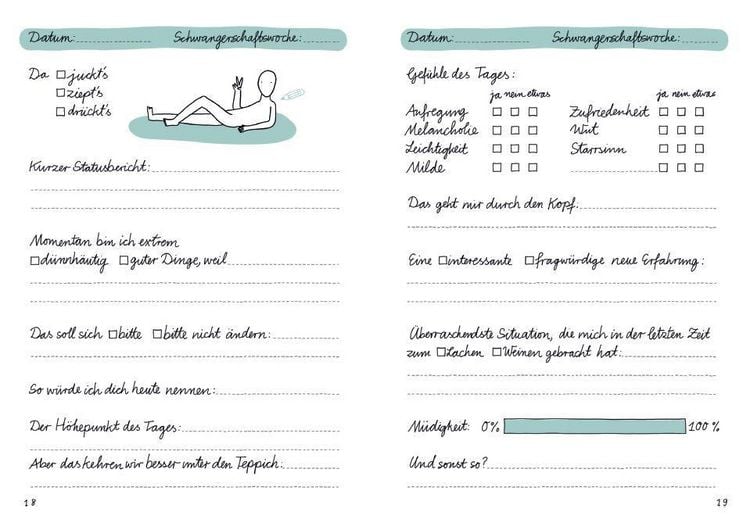 Datum: Schwangerschaftswoche:
Da juckt's
ziept's
drückt's
Kurzer Statusbericht:
Momentan bin ich extrem
dünnhäutig guter Dinge, weil
Das soll sich bitte bitte nicht ändern:
So würde ich dich heute nennen:
Der Höhepunkt des Tages:
Aber das kehren wir besser unter den Teppich:
18
Datum: Schwangerschaftswoche:
Gefühle des Tages:
ja nein etwas ja nein etwas
Aufregung Zufriedenheit
Melancholie Wut
Leichtigkeit Starrsinn
Milde
Das geht mir durch den Kopf:
Eine interessante fragwürdige neue Erfahrung:
Überraschendste Situation, die mich in der letzten Zeit
zum Lachen Weinen gebracht hat:
Müdigkeit: 0% 100%
Und sonst so?
19